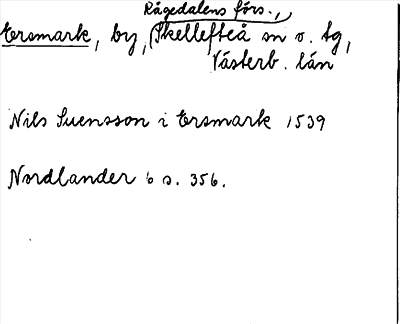 Rågedalens förs.,
Ersmark, by, Skellefteå sn o. tg,
Västerb. län
Nils Suensson i Ersmark 1539
Nordlander 6 s. 356.